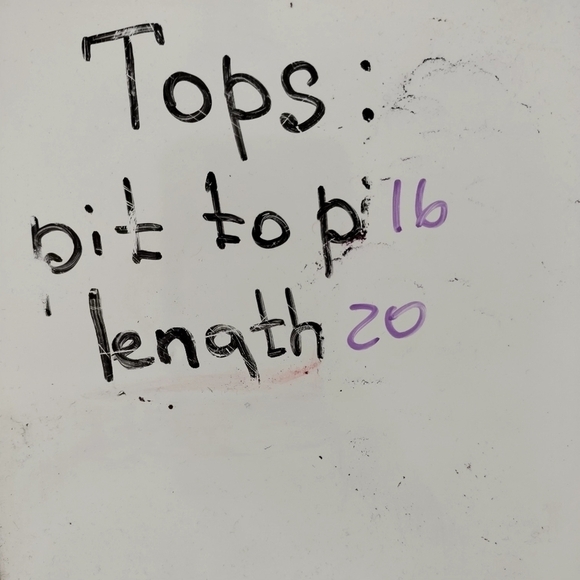 Tops:
pit to pi 16
length 20